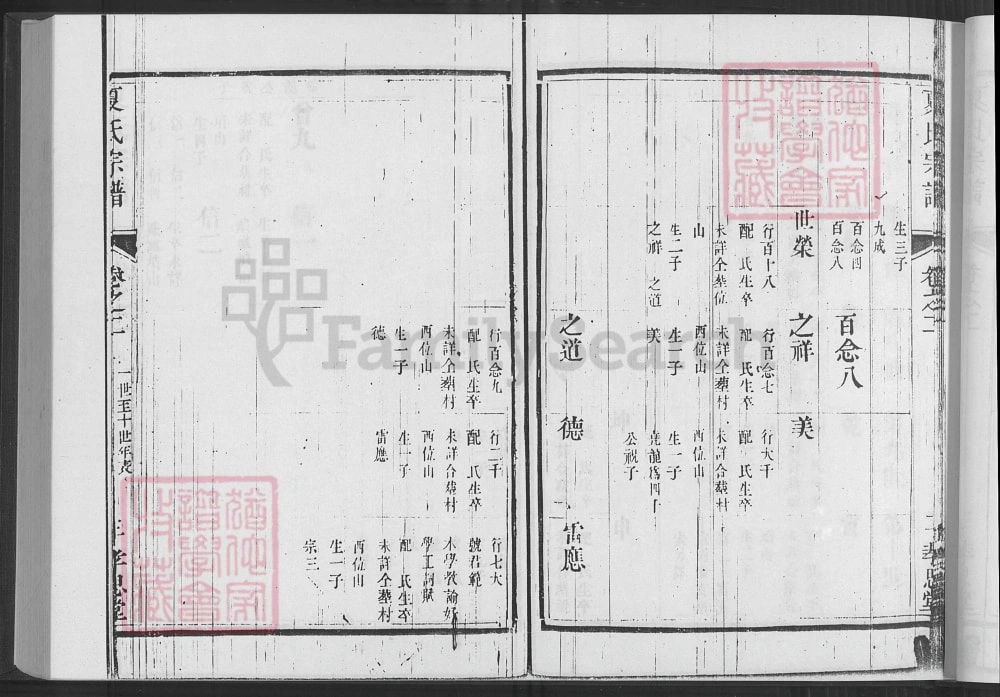 夏氏宗譜
生三子
九成
百念四
百念八
百念八
世榮
行百十八
配 氏生卒
未詳仝塟位
山
生二子
之祥 之道
之祥
行百念七
配 氏生卒
未詳仝塟村
西位山
生一子
美
美
行大千
配 氏生卒
未詳合塟村
西位山
生一子
堯龍爲四十
公祝子
之道
行百念九
配 氏生卒
未詳仝塟村
西位山
生一子
德
德
行二千
配 氏生卒
未詳合塟村
西位山
生一子
雷應
雷應
行七大
號君範
木學教諭好
學工詞賦
配 氏生卒
未詳仝塟村
西位山
生一子
宗三
夏氏宗譜
卷之二
一世至十世年表
猶他家
譜學會
珍藏
猶他家
譜學會
珍藏
FamilySearch